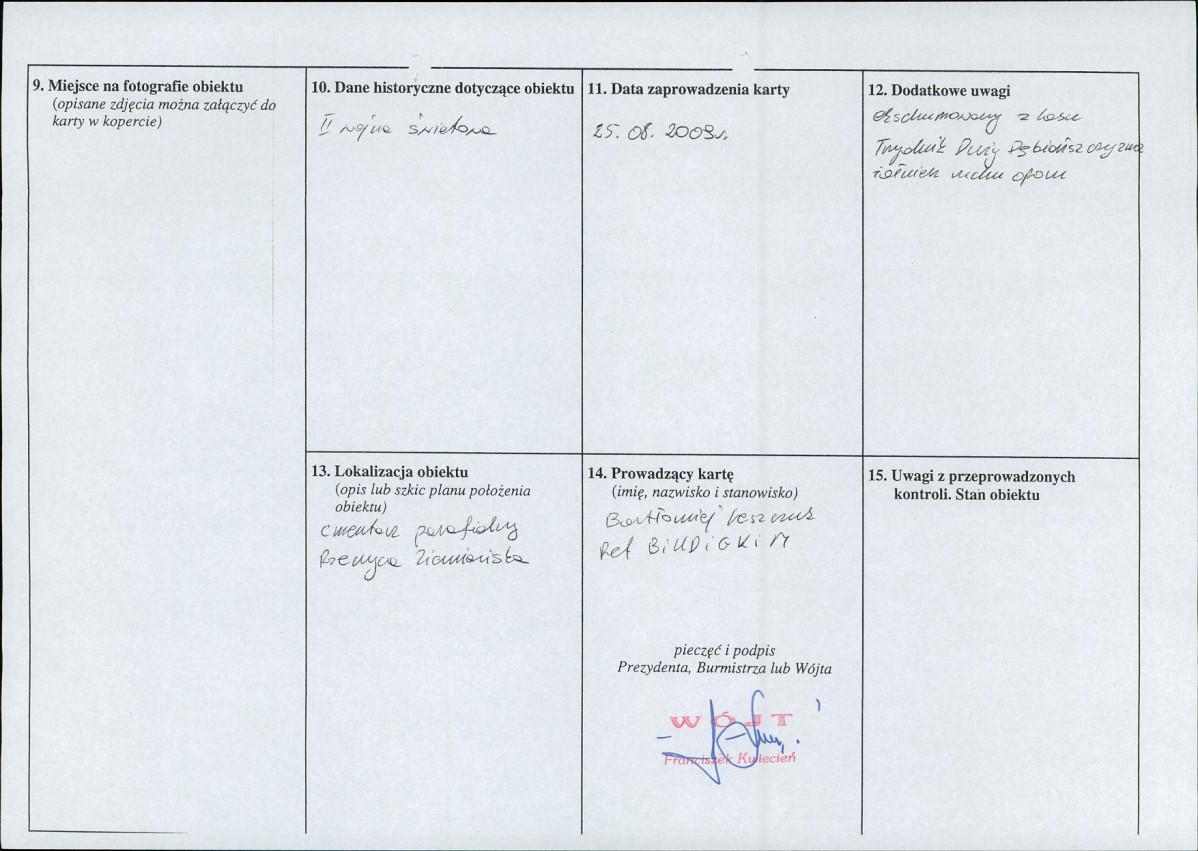 9. Miejsce na fotografie obiektu
(opisane zdjęcia można załączyć do
karty w kopercie)
10. Dane historyczne dotyczące obiektu
II wojna światowa
11. Data zaprowadzenia karty
25. 08. 2009r.
12. Dodatkowe uwagi
ekschumowany z lasu
Trzydnik Duży Dębiańszczyzna
żołnierz ruchu oporu
13. Lokalizacja obiektu
(opis lub szkic planu położenia
obiektu)
cmentarz parafialny
Rzeczyca Ziemiańska
14. Prowadzący kartę
(imię, nazwisko i stanowisko)
Bartłomiej
Ref
pieczęć i podpis
Prezydenta, Burmistrza lub Wójta
WÓJT
Franciszek Kwiecień
15. Uwagi z przeprowadzonych
kontroli. Stan obiektu